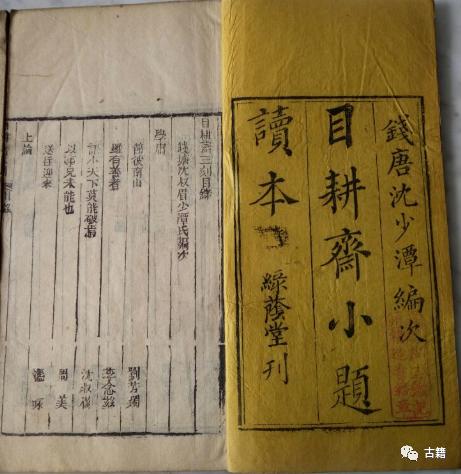 錢唐沈少潭編次
目耕齋小題
讀本 綠蔭堂刊
目耕齋三刻目錄
錢塘沈叔眉少潭氏編次
學庸
節彼南山 劉芳躅
雖有善者 李念茲
語小天下莫能破焉 沈叔
以事兄未能也 周美
送往迎來 潘
上論
古籍